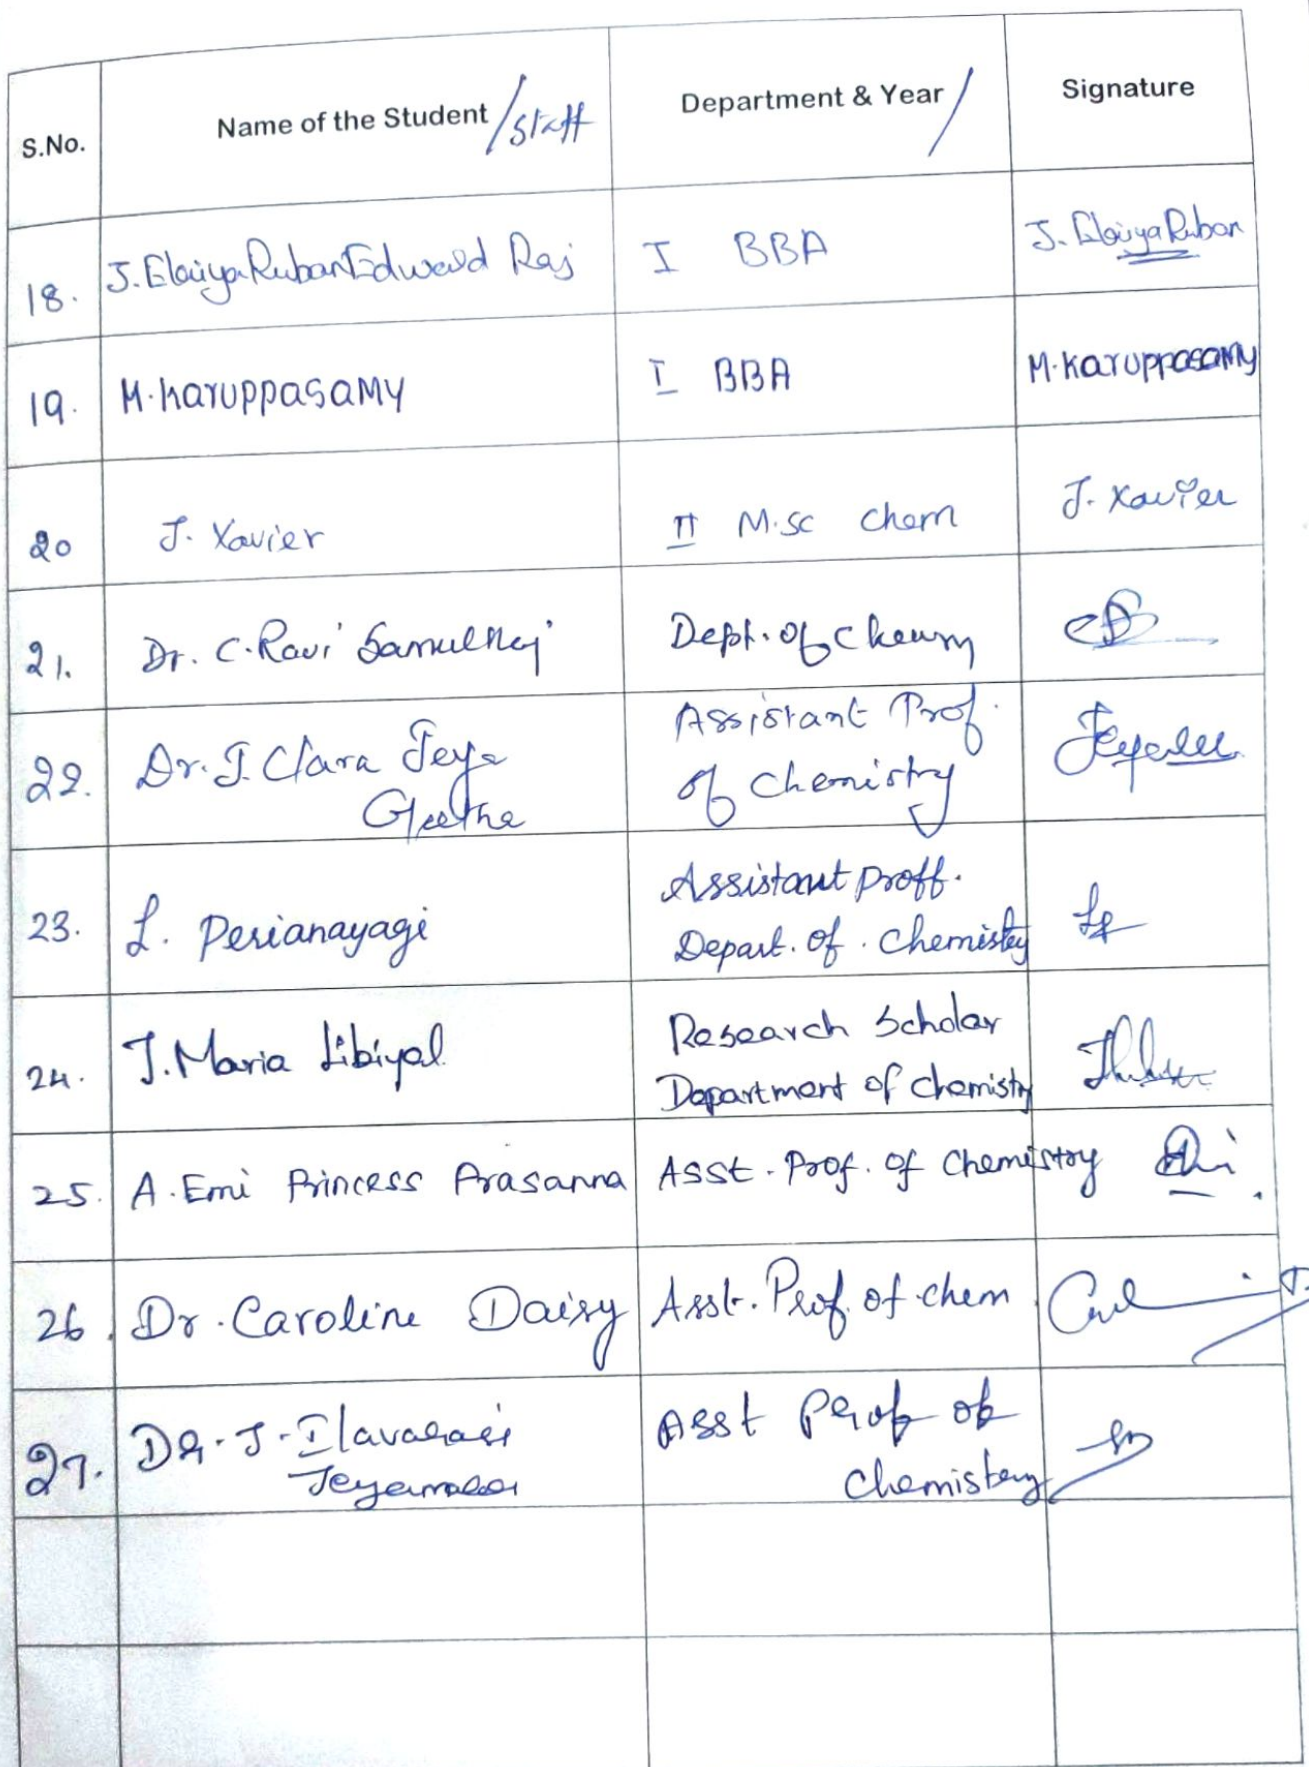 S.No. Name of the Student /Staff Department & Year / Signature
18. J. Elaiya Ruban Edward Raj I BBA J. Elaiya Ruban
19. M. Karuppasamy I BBA M. Karuppasamy
20 J. Xavier II M.Sc Chem J. Xavier
21. Dr. C. Ravi Samuelraj Dept. of Chem
22. Dr. J. Clara Jeya Assistant Prof.
Geetha of Chemistry
23. L. Perianayagi Assistant proff.
Depart. of. Chemistry
24. J. Maria Libiyal Research Scholar
Department of chemistry
25. A. Emi Princess Prasanna Asst. Prof. of Chemistry
26. Dr. Caroline Daisy Asst. Prof. of chem
27. Dr. J. Ilavarasi Asst Prof of
Jeyamalar Chemistery